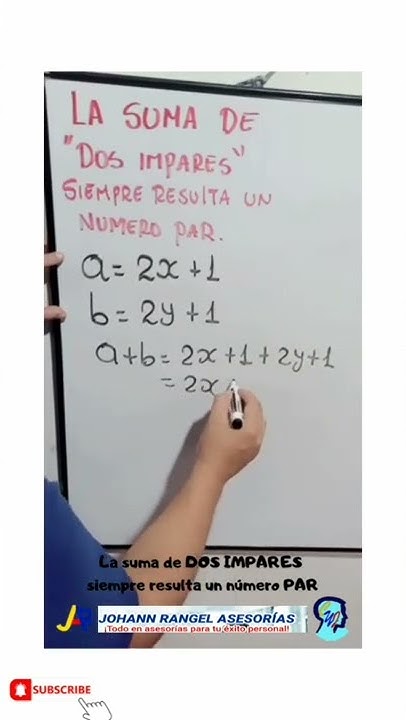 LA SUMA DE
"DOS IMPARES"
SIEMPRE RESULTA UN
NUMERO PAR.
a = 2x + 1
b = 2y + 1
a + b = 2x + 1 + 2y + 1
= 2x
La suma de DOS IMPARES
siempre resulta un número PAR
JOHANN RANGEL ASESORÍAS
¡Todo en asesorías para tu éxito personal!
SUBSCRIBE